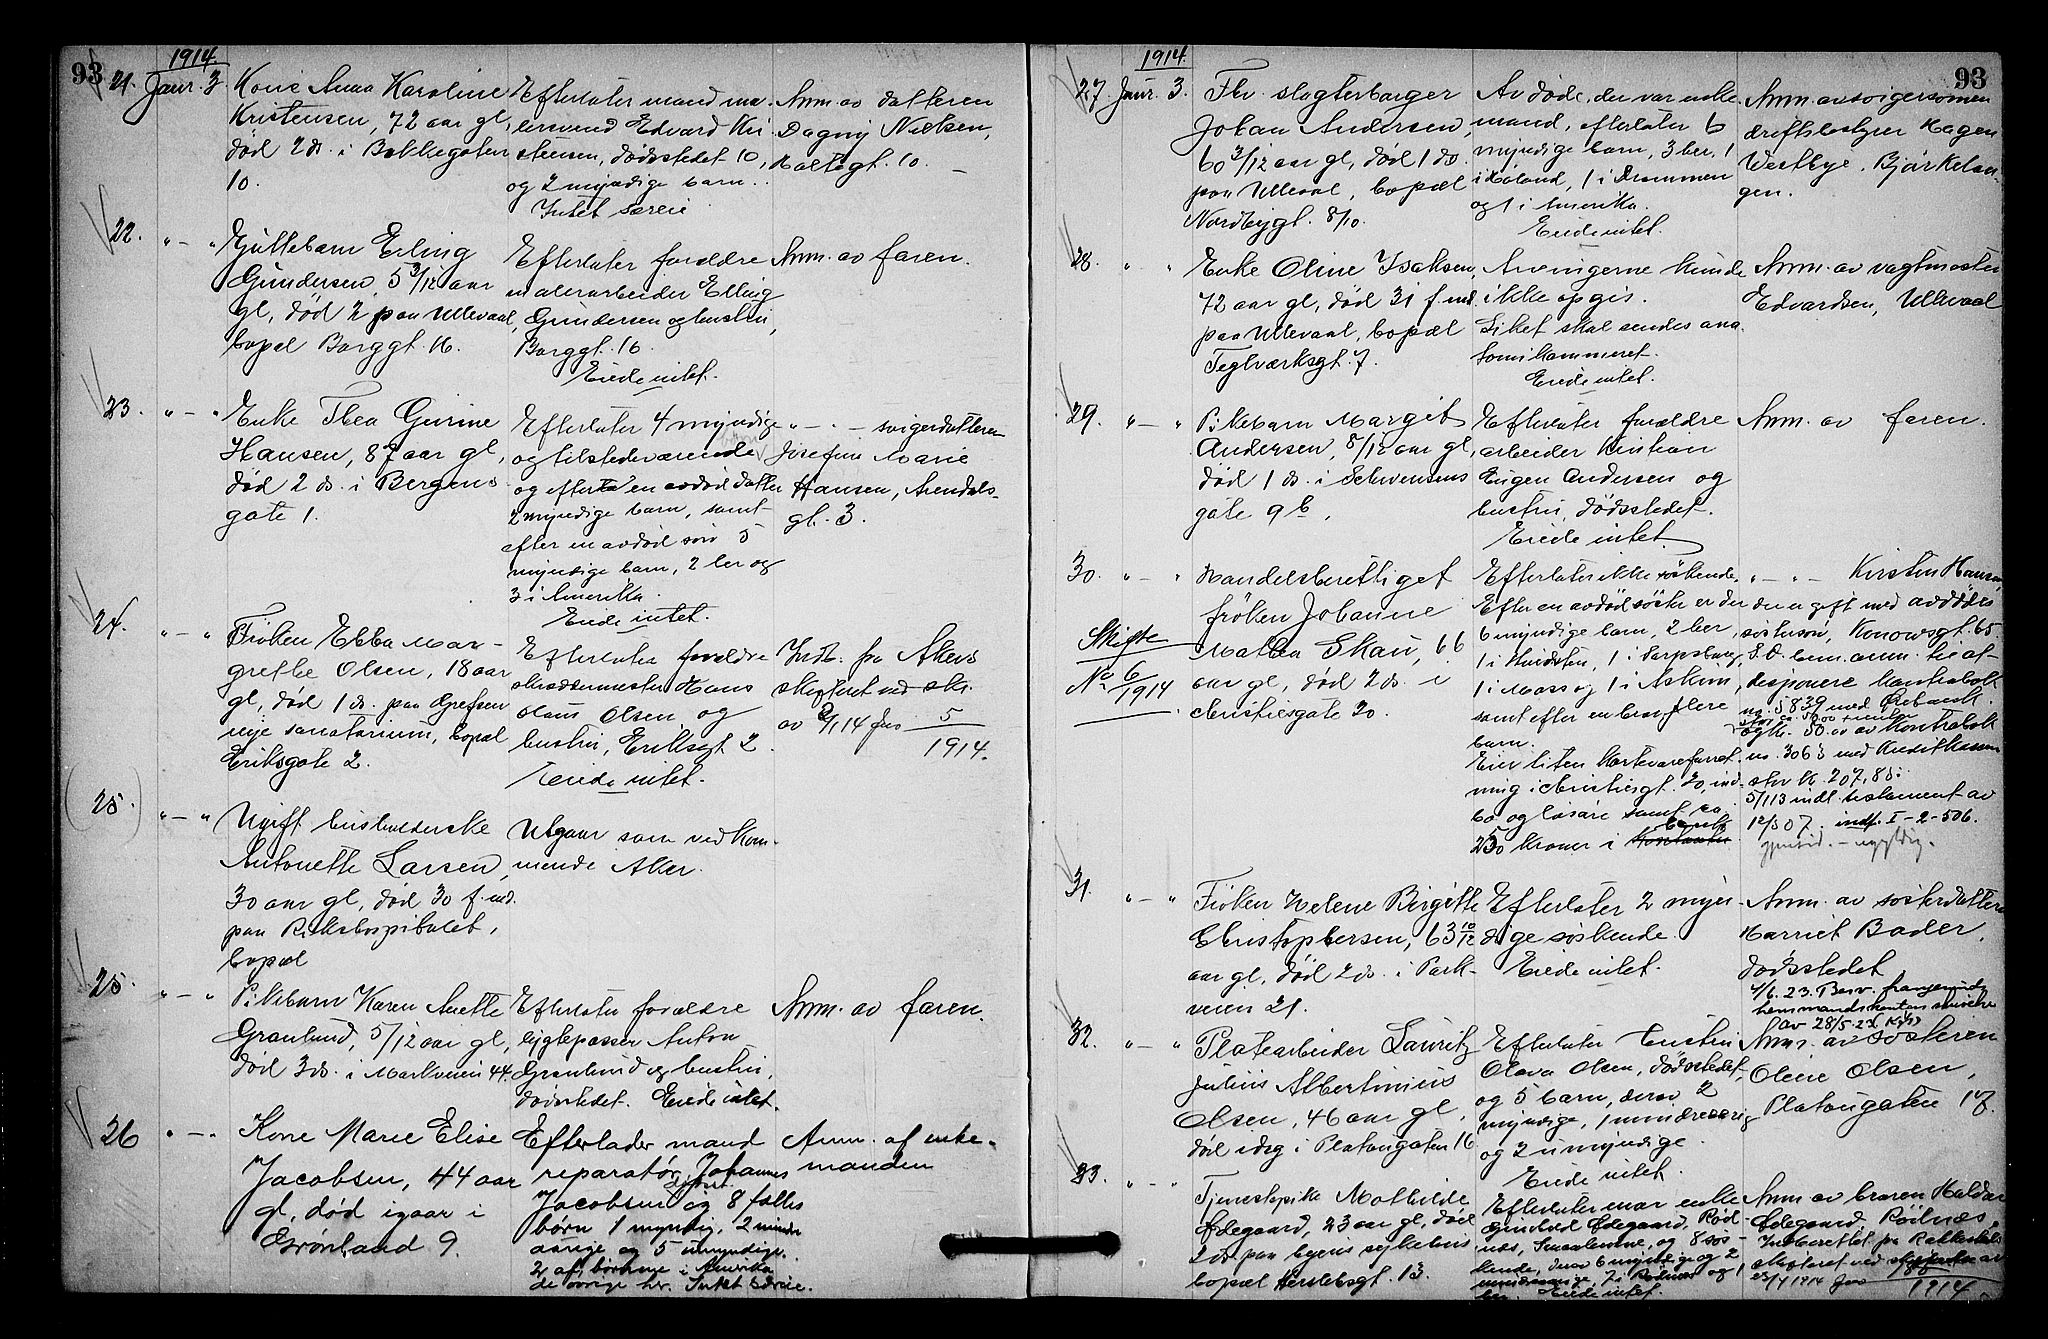 93
1914.
21. Janr. 3.
Kone Anna Karoline
Kristensen, 72 aar gl.,
død 2 ds. i Bakkegaten
10.
Efterlater mand ma-
lersvend Edvard Kri
stensen, dødsstedet 10,
og 2 myndige barn.
Intet særeie
Anm. av datteren
Dagny Nielsen,
Maltegt. 10.
22. " — "
Guttebarn Erling
Gundersen, 5 3/12 aar
gl, død 2 paa Ullevaal,
bopæl Borggt. 16.
Efterlater forældre
malerarbeider Elling
Gundersen og hustru,
Borggt. 16.
Eiede intet.
Anm. av faren.
23. " — "
Enke Thea Gurine
Hansen, 87 aar gl,
død 2 ds. i Bergens
gate 1.
Efterlater 4 myndige
og tilstedeværende
og efter en avdød datter
2 myndige barn, samt
efter en avdød søn 5
myndige barn, 2 her og
3 i Amerika.
Eiede intet.
" — " — svigerdatteren
Josefine Marie
Hansen, Arendals-
gt. 3.
24. " — "
Frøken Ebba Mar-
grethe Olsen, 18 aar
gl, død 1 ds. paa Grefsen
nye sanatorium, bopæl
Eriksgate 2.
Efterlater forældre
skræddermester Hans
Olaus Olsen og
hustru, Eriksgt 2.
Eiede intet.
Indb. fra Akers
skifteret ved skr.
av 2/1 14 Jno 5
1914.
(25.) " — "
Ugift husholderske
Antonette Larsen,
30 aar gl, død 30 f.md.
paa Rikshospitalet,
bopæl
Utgaar som ved kom-
mende Aker.
25. " — "
Pikebarn Karen Anette
Granlund, 5/12 aar gl,
død 3 ds. i Markveien 44.
Efterlater forældre
lygtepasser Anton
Granlund og hustru,
dødsstedet. Eiede intet.
Anm. av faren.
26 " — "
Kone Marie Elise
Jacobsen, 44 aar
gl., død igaar i
Grønland 9.
Efterlader mand
reparatør Johannes
Jacobsen og 8 fælles
børn 1 myndig, 2 minde
aarige og 5 umyndige.
2 af børnene i Amerika
de øvrige her. Intet særeie.
Anm. af enke-
manden
93
1914.
27. Janr. 3.
Fhv. slagterborger
Johan Andersen,
60 3/12 aar gl, død 1 ds.
paa Ullevaal, bopæl
Nordbygt. 8/10.
Avdøde, der var enke
mand, efterlater 6
myndige barn, 3 her, 1
i Høland, 1 i Drammen
og 1 i Amerika.
Eiede intet.
Anm. av svigersønnen
driftsbestyrer Hagen
Westbye, Bjørkelan-
gen.
28. " "
Enke Oline Isaksen,
72 aar gl, død 31 f.md.
paa Ullevaal, bopæl
Teglværksgt. 7.
Arvingerne kunde
ikke opgis.
Liket skal sendes ana
tomikammeret.
Eiede intet.
Anm. av vagtmester
Edvardsen, Ullevaal
29. " — "
Pikebarn Margit
Andersen, 8/12 aar gl,
død 1 ds. i Schwensens
gate 9 b.
Efterlater forældre
arbeider Kristian
Eugen Andersen og
hustru, dødsstedet.
Eiede intet.
Anm. av faren.
30. " — "
Skifte
No 6/1914
Handelsberettiget
frøken Johanne
Mathea Skau, 66
aar gl, død 2 ds. i
Christiesgate 20.
Efterlater ikke søskende.
Efter en avdød søster er der
6 myndige barn, 2 her,
1 i Hurdsten, 1 i Sarpsborg,
1 i Moss og 1 i Askim,
samt efter en bror flere
barn.
Eier liten kortevareforret-
ning i Christiesgt. 20, ind-
bo og løsøre samt ca.
250 kroner i bank
" — " — Kirstin Hansen
der er gift med avdødes
søstersøn, Konowsgt. 65.
S.D. bem. anm. til at
disponere kontrabok
no. 5839 med
og kr. 50.00 av kontrabok
no. 3063 med Kreditkassen
stor kr. 207,85.
5/1 13 indl. testament av
12/3 07. indf. I-2-506.
31. " — "
Frøken Helene Birgitte
Christophersen, 63 10/12
aar gl, død 2 ds. i Park-
veien 21.
Efterlater 2 myn-
dige søskende.
Eiede intet.
Anm. av søsterdatteren
Harriet Bader,
dødsstedet
4/6. 23. Besv.
av 28/5-23
32. " — "
Platearbeider Lauritz
Julius Albertinius
Olsen, 46 aar gl,
død idag i Platougaten 16
Efterlater hustru
Olava Olsen, dødsstedet,
og 5 barn, derav 2
myndige, 1 mindreaarig
og 2 umyndige.
Eiede intet.
Anm. av søsteren
Oline Olsen,
Platougaten 17.
33. " — "
Tjenestepike Mathilde
Ødegaard, 23 aar gl, død
2 ds. paa byens sykehus
bopæl Herslebsgt. 13.
Efterlater mor enke
Gunhild Ødegaard, Rød-
næs, Smaalenene, og 8 søs-
kende, derav 6 myndige og 2
mindreaarige, 7 i Rødnæs og 1
her. Eiede intet.
Anm. av broren Haldor
Ødegaard, Rødnæs.
Indberettet fra Rakkestad
skifteret ved
23/4 1914 Jno
1914